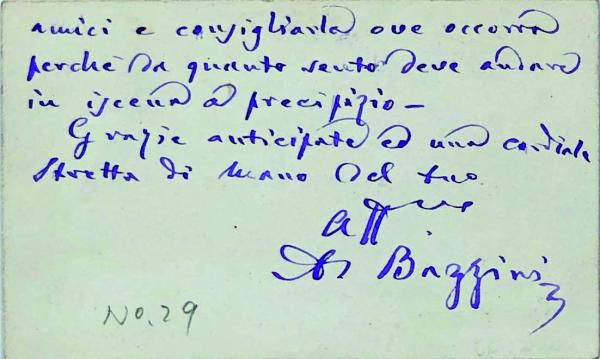 amici e consigliarla ove occorra
perchè da quanto sento deve andare
in iscena a precipizio —
Grazie anticipate ed una cordiale
stretta di mano del tuo
aff
A Bazzini
No. 29